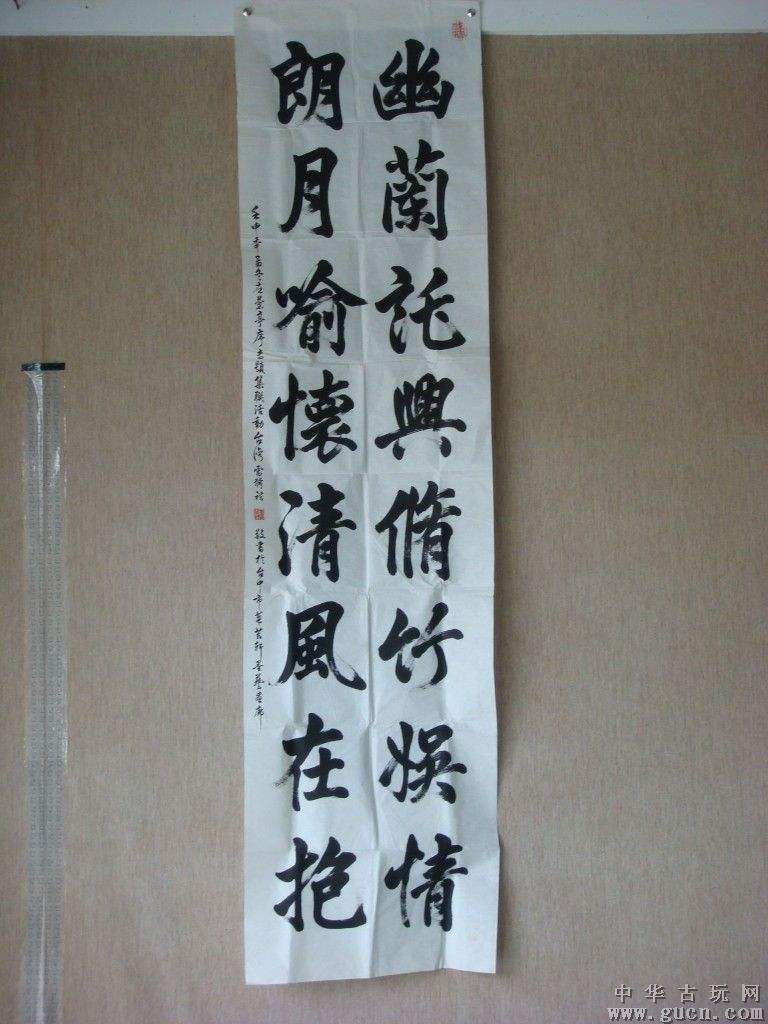 幽蘭託興脩竹娛情
朗月喻懷清風在抱
壬申年孟冬應蘭亭序主題集聯活動台灣
敬書於台中市
中华古玩网
www.gucn.com